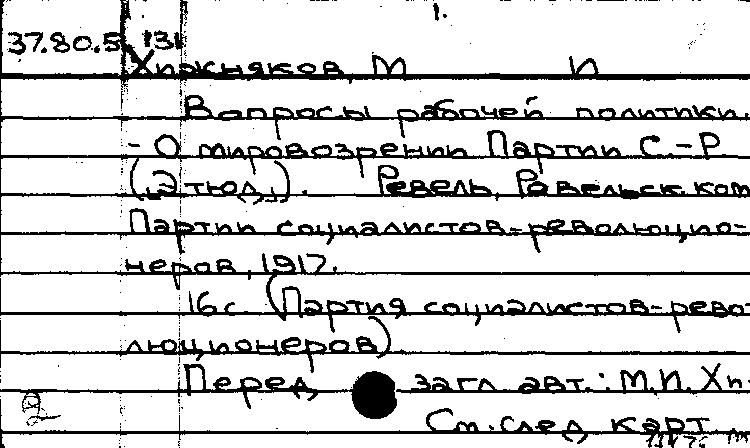 1.
37.80.5 131
Хижняков, М И
Вопросы рабочей политики.
- О мировозрении Партии С.-Р
Ревель, Ревельск. ком
Партии социалистов-революцио-
неров, 1917.
16 с. (Партия социалистов-рево-
люционеров)
Перед загл авт.: М.И. Хи-
См. след карт
2